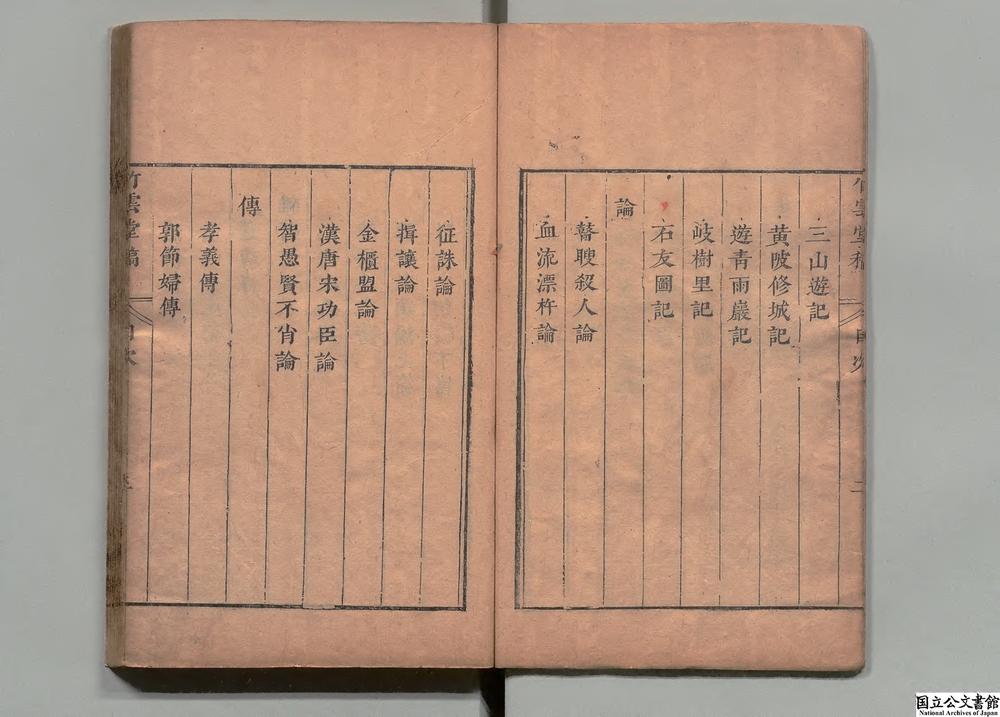 竹雲堂稿
目次
二
三山遊記
黃陂修城記
遊青雨巖記
岐樹里記
石友圖記
論
瞽瞍殺人論
血流漂杵論
征誅論
揖讓論
金櫃盟論
漢唐宋功臣論
智愚賢不肖論
傳
孝義傳
郭節婦傳
竹雲堂稿
目次
国立公文書館
National Archives of Japan